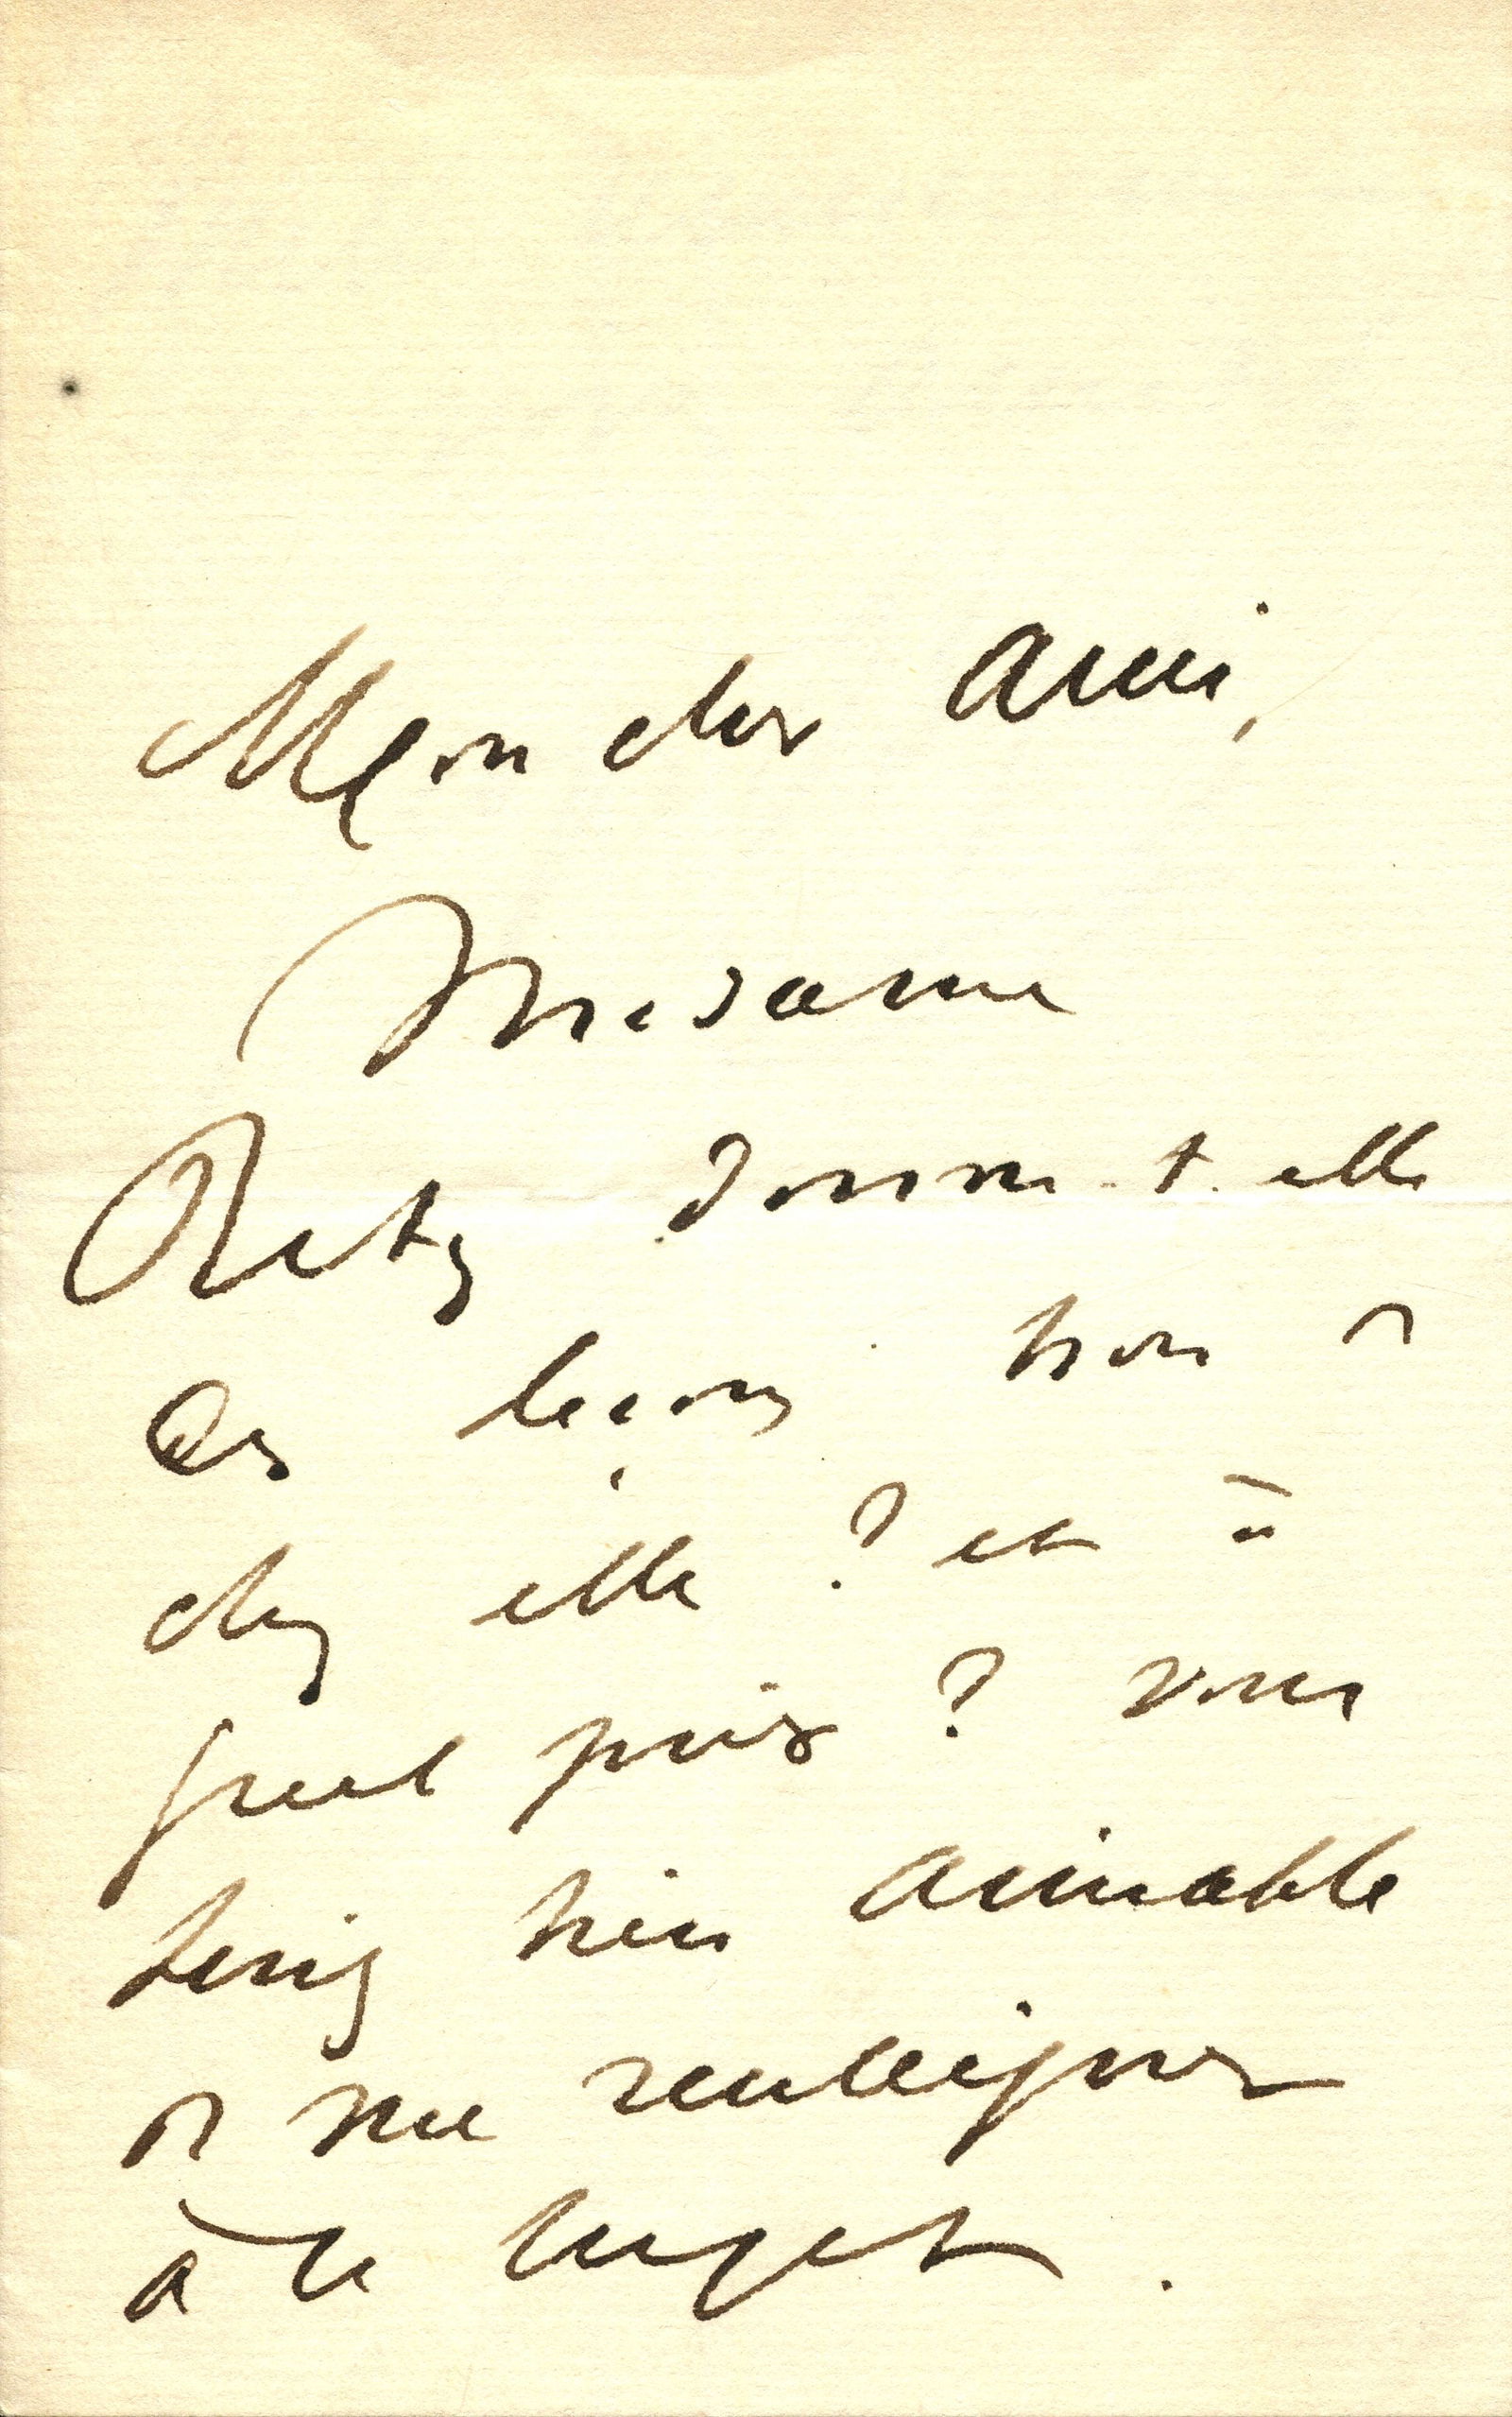 Mon cher ami,
Madame
Réty donne-t-elle
des leçons hors de
chez elle ? et à
quel prix ? vous
seriez bien aimable
de me renseigner
à ce sujet.